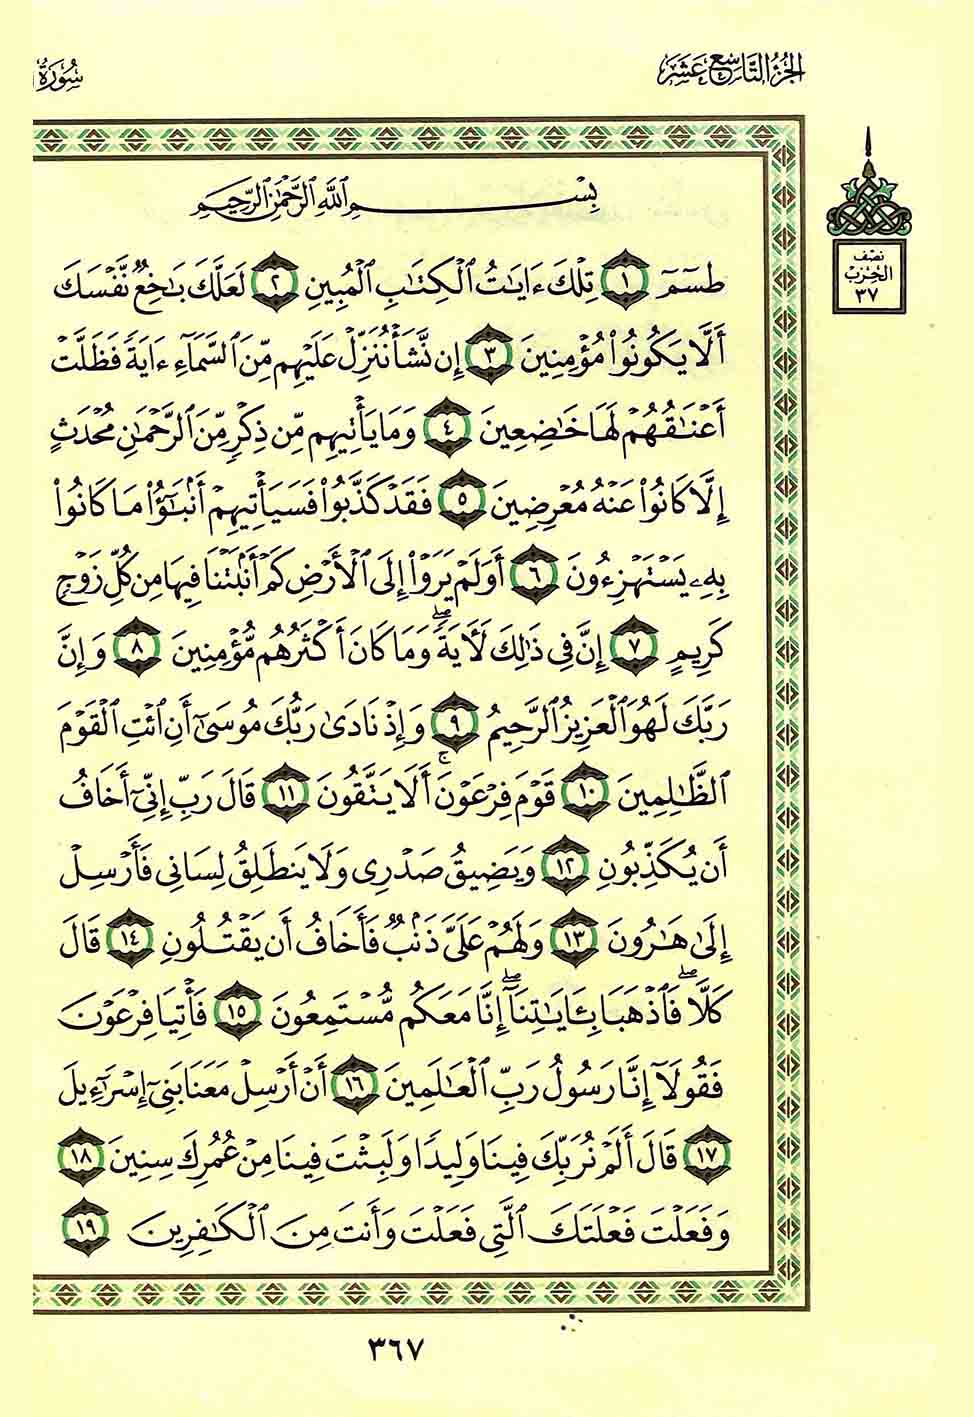 الجزء التاسع عشر
سورة
نصف
الحزب
٣٧
بِسْمِ ٱللَّهِ ٱلرَّحْمَٰنِ ٱلرَّحِيمِ
طسٓمٓ ١ تِلْكَ ءَايَٰتُ ٱلْكِتَٰبِ ٱلْمُبِينِ ٢ لَعَلَّكَ بَٰخِعٌ نَّفْسَكَ
أَلَّا يَكُونُوا۟ مُؤْمِنِينَ ٣ إِن نَّشَأْ نُنَزِّلْ عَلَيْهِم مِّنَ ٱلسَّمَآءِ ءَايَةً فَظَلَّتْ
أَعْنَٰقُهُمْ لَهَا خَٰضِعِينَ ٤ وَمَا يَأْتِيهِم مِّن ذِكْرٍ مِّنَ ٱلرَّحْمَٰنِ مُحْدَثٍ
إِلَّا كَانُوا۟ عَنْهُ مُعْرِضِينَ ٥ فَقَدْ كَذَّبُوا۟ فَسَيَأْتِيهِمْ أَنۢبَٰٓؤُا۟ مَا كَانُوا۟
بِهِۦ يَسْتَهْزِءُونَ ٦ أَوَلَمْ يَرَوْا۟ إِلَى ٱلْأَرْضِ كَمْ أَنۢبَتْنَا فِيهَا مِن كُلِّ زَوْجٍ
كَرِيمٍ ٧ إِنَّ فِى ذَٰلِكَ لَءَايَةً ۖ وَمَا كَانَ أَكْثَرُهُم مُّؤْمِنِينَ ٨ وَإِنَّ
رَبَّكَ لَهُوَ ٱلْعَزِيزُ ٱلرَّحِيمُ ٩ وَإِذْ نَادَىٰ رَبُّكَ مُوسَىٰٓ أَنِ ٱئْتِ ٱلْقَوْمَ
ٱلظَّٰلِمِينَ ١٠ قَوْمَ فِرْعَوْنَ ۚ أَلَا يَتَّقُونَ ١١ قَالَ رَبِّ إِنِّىٓ أَخَافُ
أَن يُكَذِّبُونِ ١٢ وَيَضِيقُ صَدْرِى وَلَا يَنطَلِقُ لِسَانِى فَأَرْسِلْ
إِلَىٰ هَٰرُونَ ١٣ وَلَهُمْ عَلَىَّ ذَنۢبٌ فَأَخَافُ أَن يَقْتُلُونِ ١٤ قَالَ
كَلَّا ۖ فَٱذْهَبَا بِـَٔايَٰتِنَآ ۖ إِنَّا مَعَكُم مُّسْتَمِعُونَ ١٥ فَأْتِيَا فِرْعَوْنَ
فَقُولَآ إِنَّا رَسُولُ رَبِّ ٱلْعَٰلَمِينَ ١٦ أَنْ أَرْسِلْ مَعَنَا بَنِىٓ إِسْرَٰٓءِيلَ
١٧ قَالَ أَلَمْ نُرَبِّكَ فِينَا وَلِيدًا وَلَبِثْتَ فِينَا مِنْ عُمُرِكَ سِنِينَ ١٨
وَفَعَلْتَ فَعْلَتَكَ ٱلَّتِى فَعَلْتَ وَأَنتَ مِنَ ٱلْكَٰفِرِينَ ١٩
٣٦٧